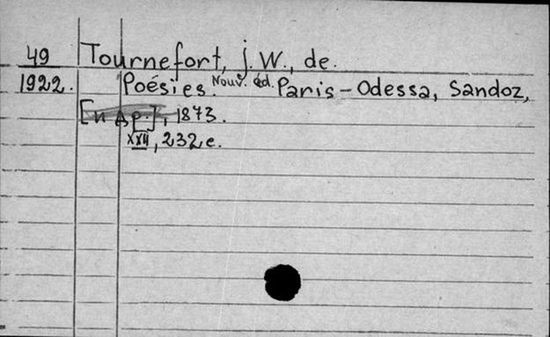 49 Tournefort, j. W., de.
1922. Poésies. Nouv. éd. Paris – Odessa, Sandoz,
[и др.], 1873.
XXII, 232 с.